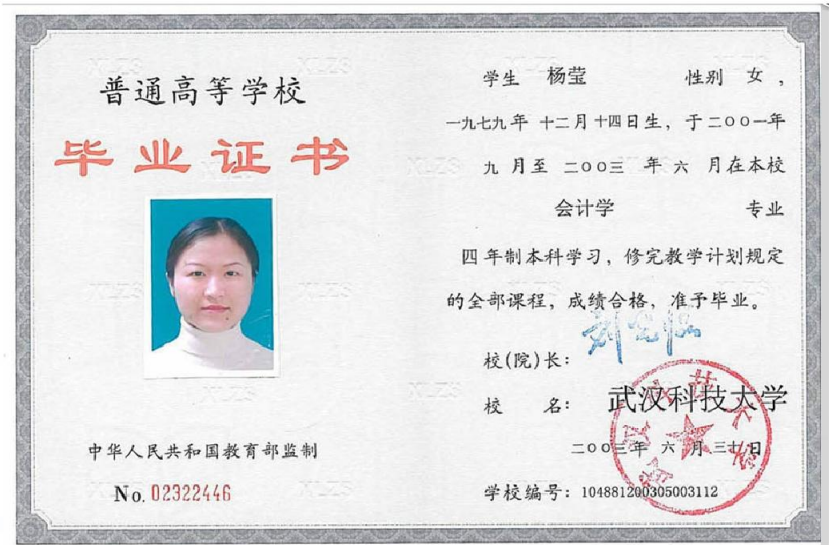 普通高等学校
毕业证书
中华人民共和国教育部监制
No. 02322446
学生 杨莹 性别 女，
一九七九年 十二月十四日生，于二〇〇一年
九 月至 二〇〇三 年 六 月在本校
会计学 专业
四 年制本科学习，修完教学计划规定
的全部课程，成绩合格，准予毕业。
校(院)长：
校 名： 武汉科技大学
二〇〇三年 六 月三十日
学校编号：104881200305003112
武汉科技大学